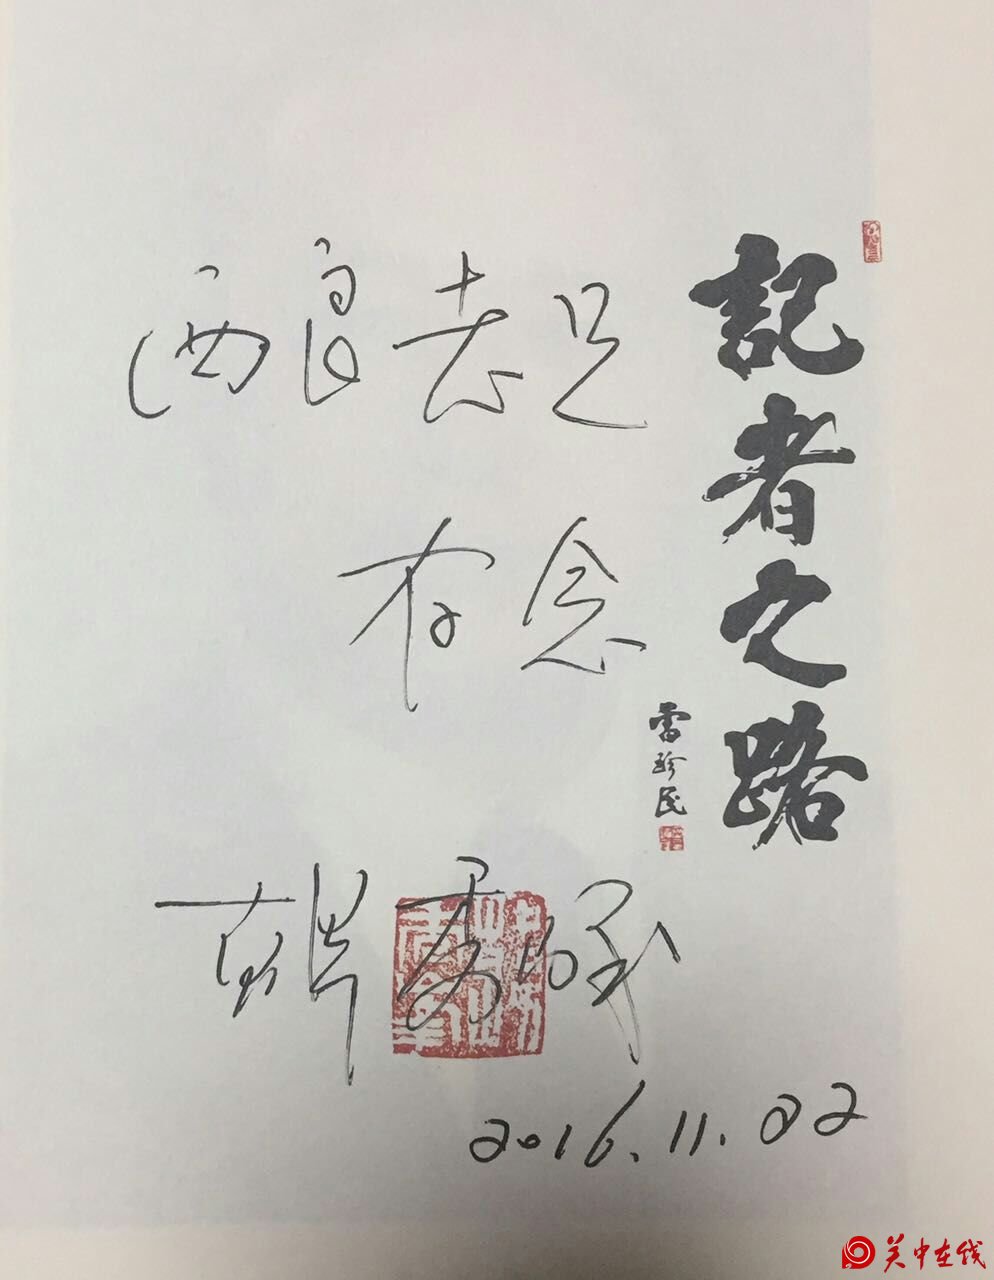 記者之路
雷珍民
良老兄
存念
韩秀
2016.11.22
关中在线